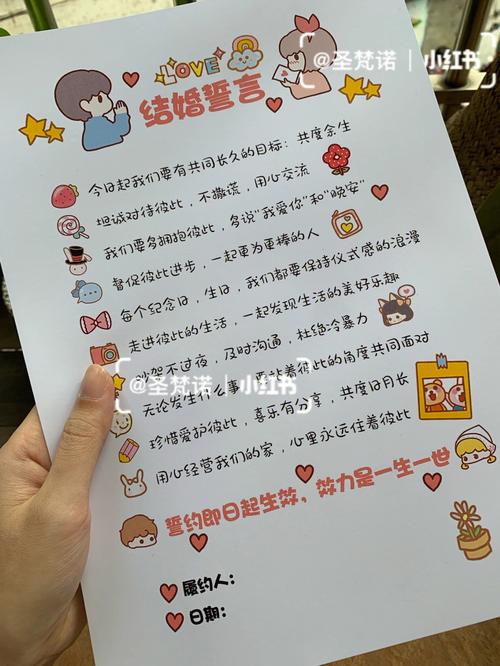 @圣梵诺 | 小红书
LOVE
结婚誓言
今日起我们要有共同长久的目标：共度余生
坦诚对待彼此，不撒谎，用心交流
我们要多拥抱彼此，多说"我爱你"和"晚安"
督促彼此进步，一起更为更棒的人
每个纪念日，生日，我们都要保持仪式感的浪漫
走进彼此的生活，一起发现生活的美好乐趣
吵架不过夜，及时沟通，杜绝冷暴力
@圣梵诺 | 小红书
无论发生什么事，要站着彼此的角度共同面对
珍惜爱护彼此，喜乐有分享，共度日月长
用心经营我们的家，心里永远住着彼此
誓约即日起生效，效力是一生一世
履约人：
日期：